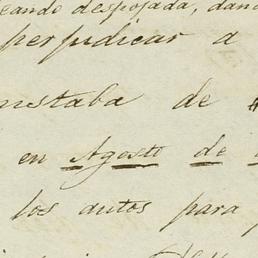 eando despojada, dan
perjudicar a
nstaba de
en Agosto de
los autos para